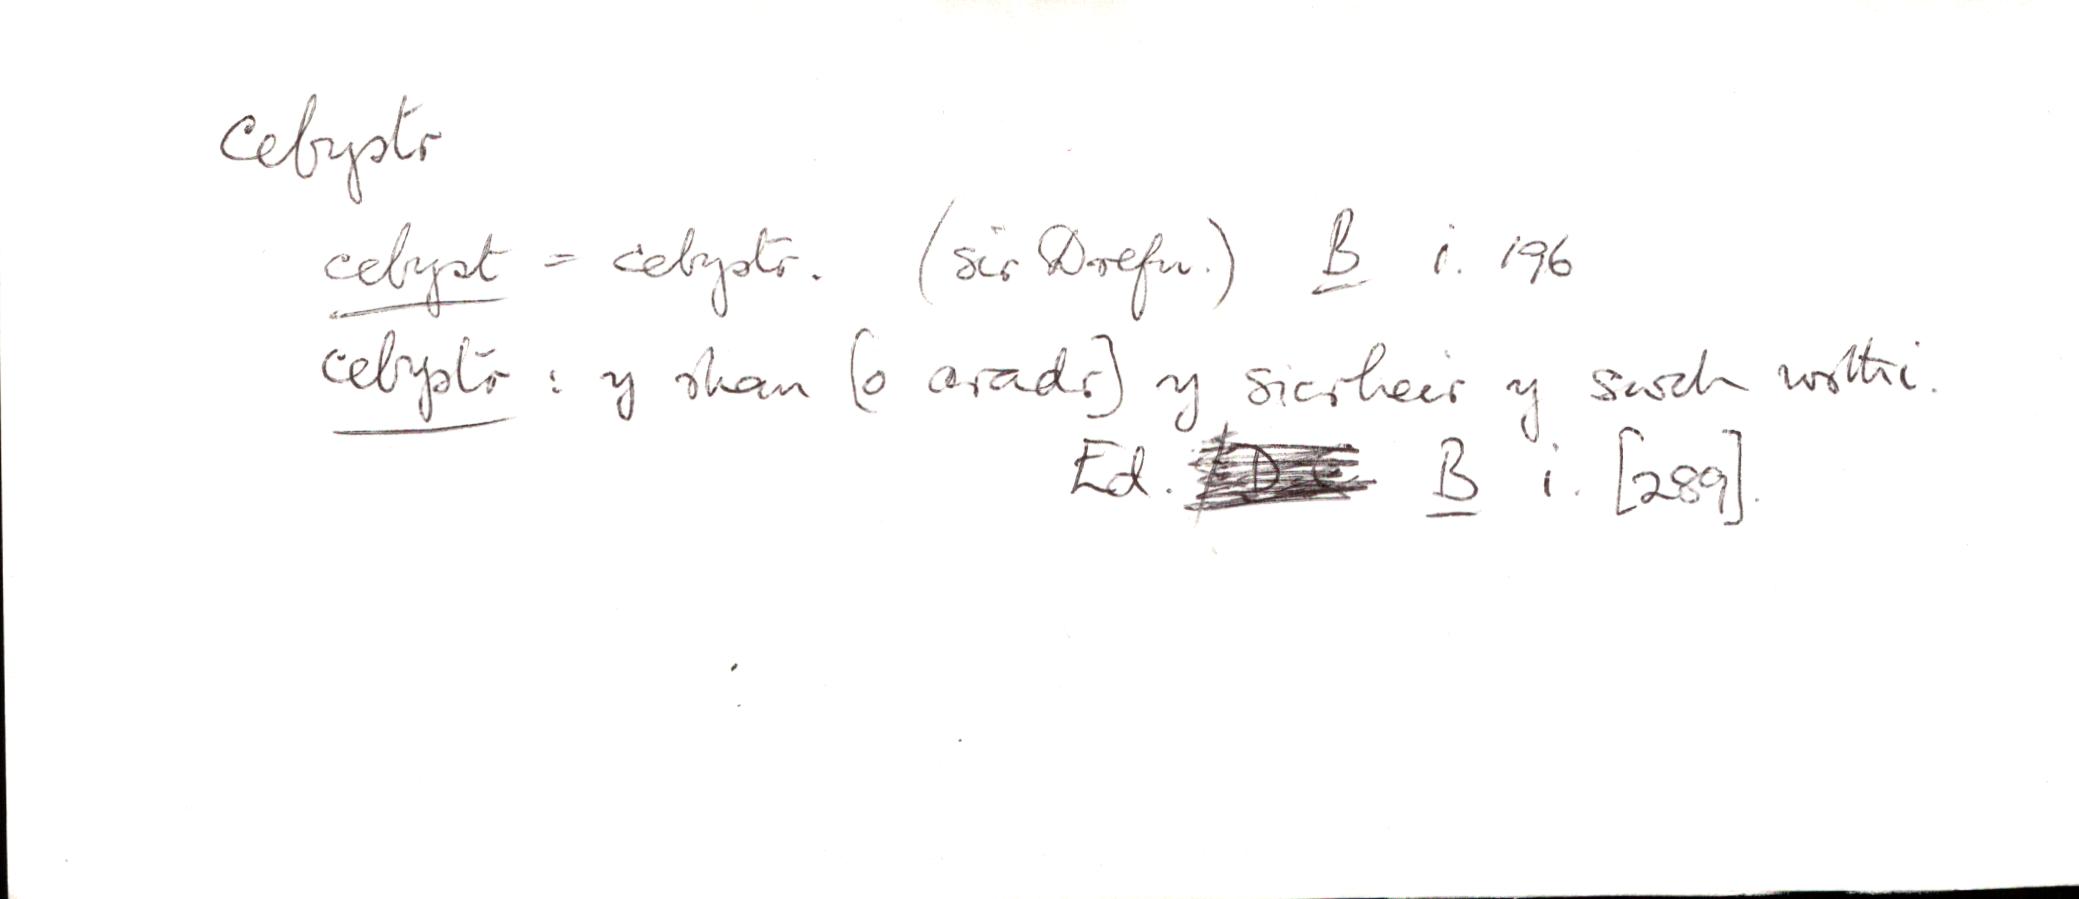 Cebystr
cebyst = cebystr. (sir Drefn.) B i. 196
cebystr : y rhan [o aradr] y sicrheir y swch wrthi.
Ed. B i. [289].